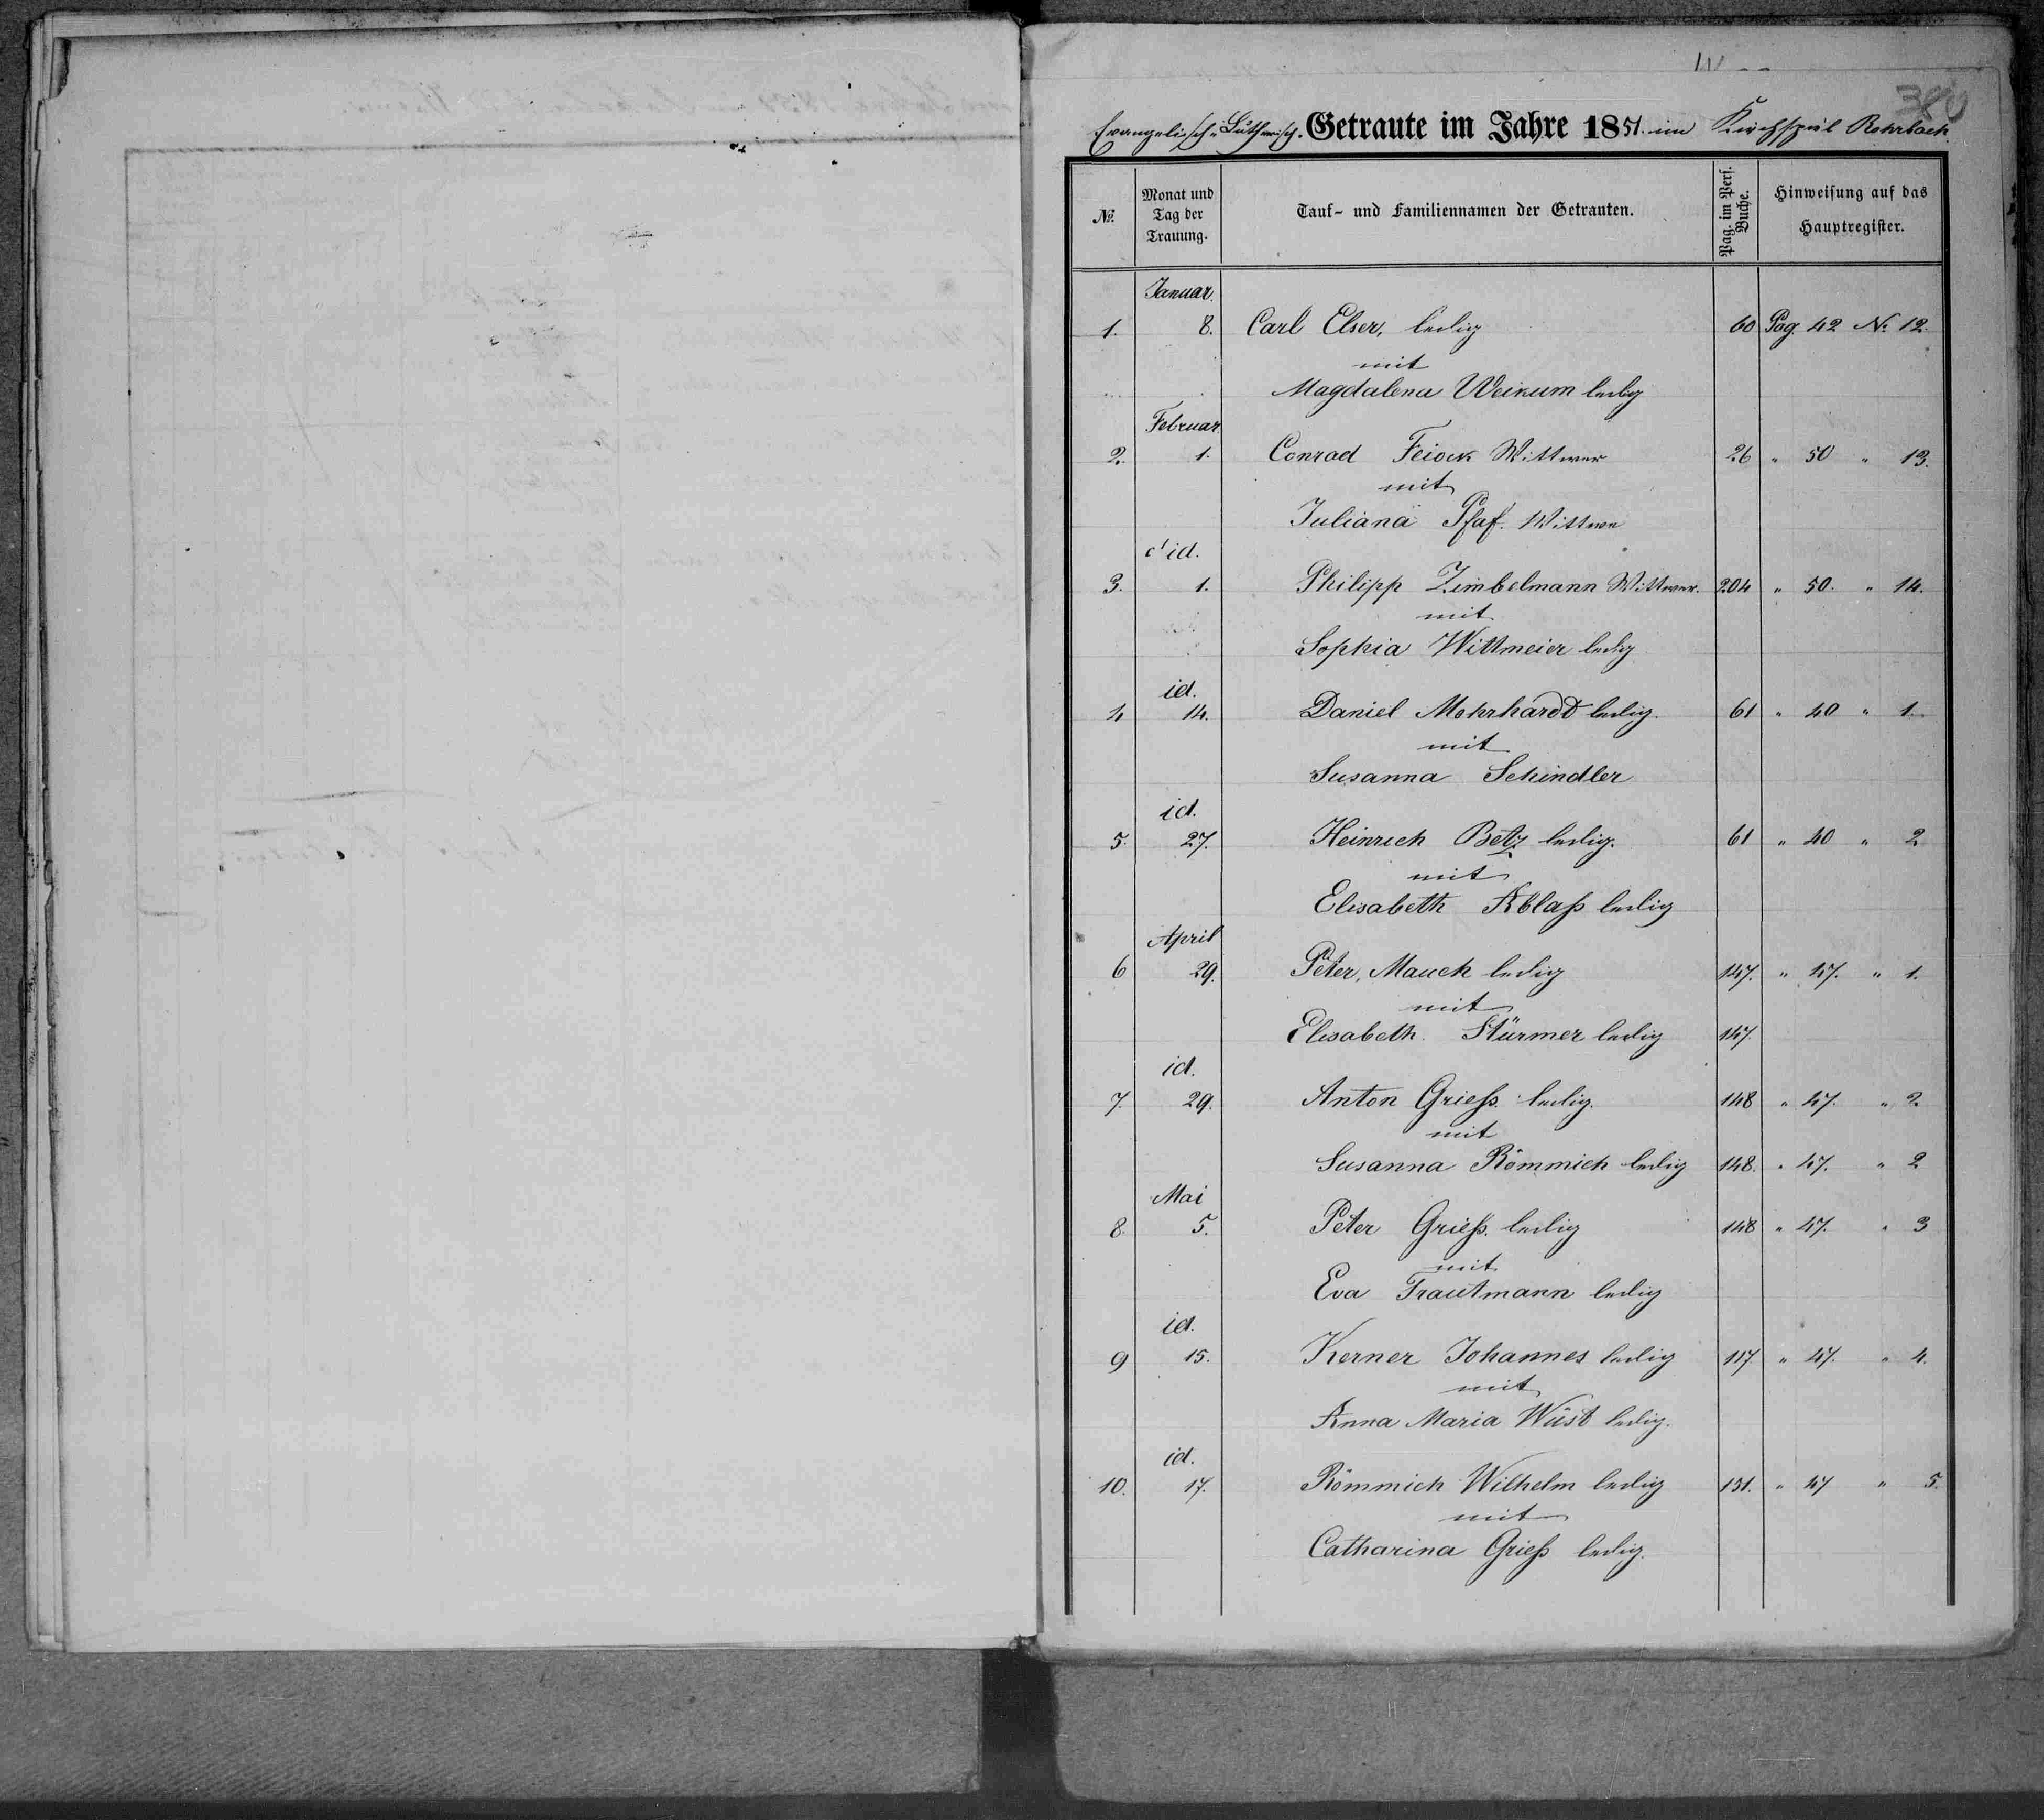 Evangelisch-Lutherisch. Getraute im Jahre 1851. im Kirchspiel Rohrbach
№ Monat und Tag der Trauung. Tauf- und Familiennamen der Getrauten. Pag. im Pers. Buche. Hinweisung auf das Hauptregister.
Januar.
1. 8. Carl Elser, ledig 60 Pag. 42 № 12.
mit
Magdalena Weikum ledig
Februar.
2. 1. Conrad Feiock Wittwer 26 " 50 " 13.
mit
Juliana Pfaf. Wittwe
id.
3. 1. Philipp Zimbelmann Wittwer. 204 " 50. " 14.
mit
Sophia Wittmeier ledig
id.
4 14. Daniel Mohrhardt ledig. 61 " 40 " 1.
mit
Susanna Schindler
id.
5. 27. Heinrich Betz ledig. 61 " 40 " 2
mit
Elisabeth Ablaß ledig
April
6 29. Peter, Mauch ledig 147. " 47. " 1.
mit
Elisabeth. Stürmer ledig 147.
id.
7. 29. Anton Grieß. ledig. 148 " 47. " 2.
mit
Susanna Römmich ledig 148. " 47. " 2
Mai
8. 5. Peter Grieß. ledig 148 " 47. " 3
mit
Eva Trautmann ledig
id.
9 15. Kerner Johannes ledig 117. " 47. " 4.
mit
Anna Maria Wüst ledig.
id.
10. 17. Römmich Wilhelm ledig 131. " 47 " 5.
mit
Catharina Grieß ledig.